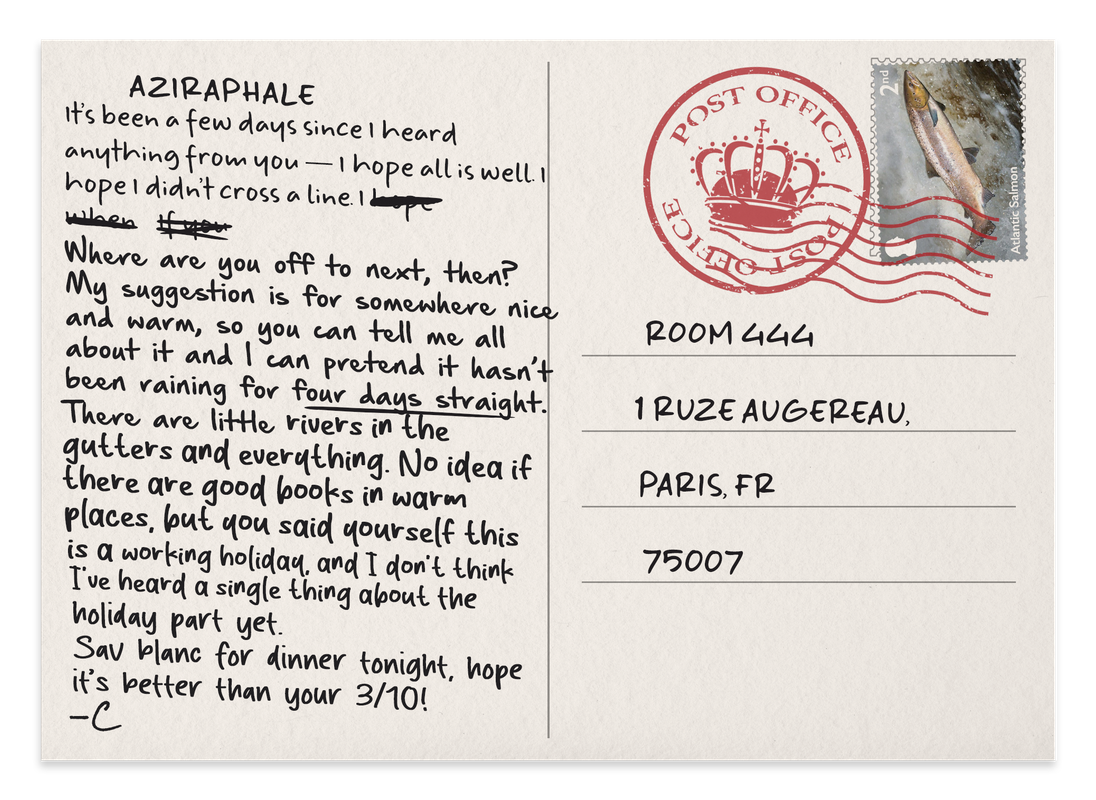 AZIRAPHALE
It's been a few days since I heard
anything from you — I hope all is well. I
hope I didn't cross a line. I hope
when If you
Where are you off to next, then?
My suggestion is for somewhere nice
and warm, so you can tell me all
about it and I can pretend it hasn't
been raining for four days straight.
There are little rivers in the
gutters and everything. No idea if
there are good books in warm
places, but you said yourself this
is a working holiday, and I don't think
I've heard a single thing about the
holiday part yet.
Sav blanc for dinner tonight, hope
it's better than your 3/10!
—C
POST OFFICE
POST OFFICE
2nd
Atlantic Salmon
ROOM 444
1 RUZE AUGEREAU,
PARIS, FR
75007